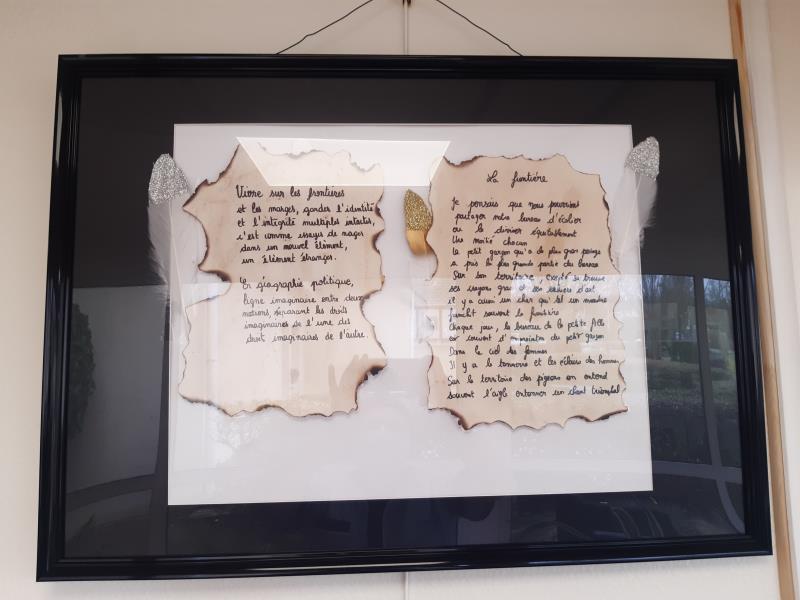 Vivre sur les frontières
et les marges, garder l'identité
et l'intégrité multiples intactes,
c'est comme essayer de nager
dans un nouvel élément,
un élément étranger.
En géographie politique,
ligne imaginaire entre deux
nations, séparant les droits
imaginaires de l'une des
droits imaginaires de l'autre.
La frontière
Je pensais que nous pouvions
partager notre bureau d'écolier
ou le diviser équitablement
Une moitié chacun
Le petit garçon qui a de plus gros poings
a pris la plus grande partie du bureau
Sur son territoire, se trouve
ses crayons gras et ses cahiers d'art
il y a aussi un char qui tel un monstre
franchit souvent la frontière
Chaque jour, le bureau de la petite fille
est couvert d'empreintes du petit garçon
Dans le ciel des femmes
Il y a le tonnerre et les éclairs des hommes
Sur le territoire des pigeons on entend
souvent l'aigle entonner un chant triomphal